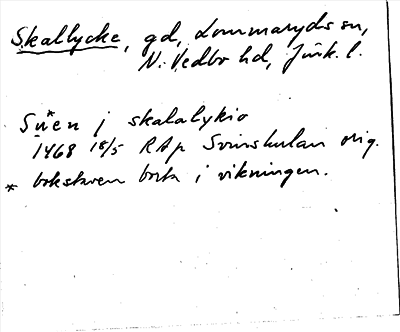 Skallycke, gd, Lommaryds sn,
N. Vedbo hd, Jönk. l.
Sv*en j skalalykio
1468 18/5 RAp Svinhulan orig.
* bokstaven borta i vikningen.